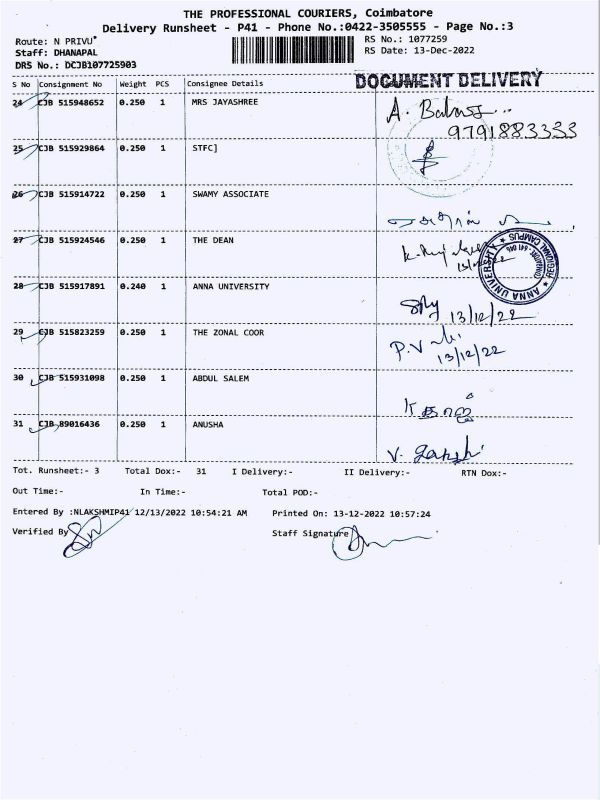 THE PROFESSIONAL COURIERS, Coimbatore
Delivery Runsheet - P41 - Phone No.:0422-3505555 - Page No.:3
Route: N PRIVU*
RS No.: 1077259
Staff: DHANAPAL
RS Date: 13-Dec-2022
DRS No.: DCJB107725903
S No Consignment No Weight PCS Consignee Details
DOCUMENT DELIVERY
24 CJB 515948652 0.250 1 MRS JAYASHREE
9791883333
25 CJB 515929864 0.250 1 STFC]
26 CJB 515914722 0.250 1 SWAMY ASSOCIATE
27 CJB 515924546 0.250 1 THE DEAN
ANNA UNIVERSITY REGIONAL CAMPUS
COIMBATORE - 641 046
28 CJB 515917891 0.240 1 ANNA UNIVERSITY
13/12/22
29 CJB 515823259 0.250 1 THE ZONAL COOR
P.V
13/12/22
30 CJB 515931098 0.250 1 ABDUL SALEM
31 CJB 89016436 0.250 1 ANUSHA
Tot. Runsheet:- 3 Total Dox:- 31 I Delivery:- II Delivery:- RTN Dox:-
Out Time:- In Time:- Total POD:-
Entered By :NLAKSHMIP41 12/13/2022 10:54:21 AM Printed On: 13-12-2022 10:57:24
Verified By
Staff Signature